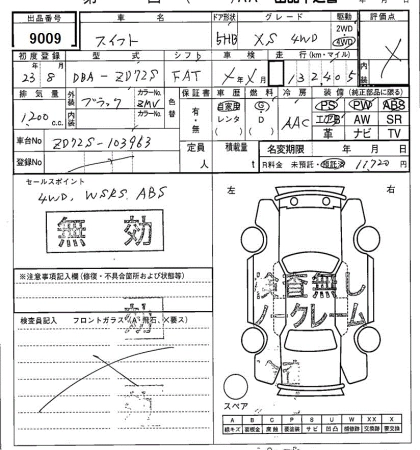 出品番号 車名 ドア形状 グレード 駆動 評価点
9009 スイフト 5HB XS 4WD 2WD 4WD X
初度登録 型式 シフト 車検 走行(km・マイル) 内装
23年8月 DBA-ZD72S FAT X年X月 132405
排気量 外装 ブラック カラーNo. ZMV 色替 保証書 車歴 燃料 冷房 装備(純正部品に限る)
1200 c.c. 内装 カラーNo. 有・無 自家用 レンタ G D AAC PS PW ABS
エアB AW SR
革 ナビ TV
車台No ZD72S-103963 定員 人 積載量 t 名変期限 年 月 日
登録No R料金 未預託・預託済 11,720円
セールスポイント 左 右
4WD, WSRS ABS
無効
検査無し
ノークレーム
※注意事項記入欄(修復・不具合箇所および状態等)
検査員記入 フロントガラス(A・飛石、X要ス)
スペア
A B C P S U W X XX
線キズ 板金 腐食 要塗装 サビ 凹凸 補修跡 要交換 交換済